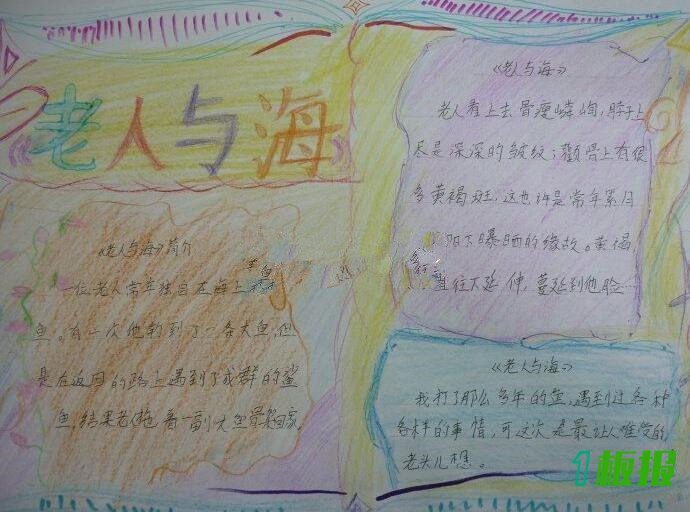 《老人与海》
《老人与海》简介
一位老人常年独自在海上
鱼。有一次他钓到了一条大鱼,但
是在返回的路上遇到了成群的鲨
鱼,结果老拖着一副大鱼骨架回家。
《老人与海》
老人看上去骨瘦嶙峋,脖子上
尽是深深的皱纹;颧骨上有很
多黄褐斑,这也许是常年累月
阳下曝晒的缘故。黄褐
往下延伸,蔓延到他脸…
《老人与海》
我打了那么多年的鱼,遇到过各种
各样的事情,可这次是最让人难受的
老头儿想。
1板报